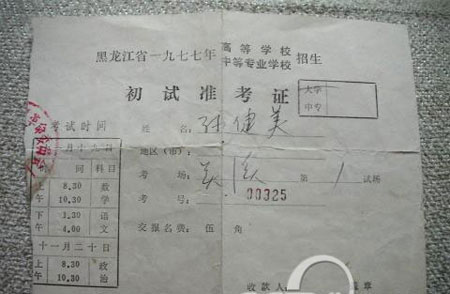 黑龙江省一九七七年 高等学校 招生
中等专业学校
初试准考证
大学
中专
考试时间
姓名:孙健美
地区(市):
月十九日
时间 科目
考场: 第1试场
上午 8.30 数
10.30 学
考号: 00325
下午 1.30 语
4.00 文
交报名费:伍角
十一月二十日
上午 8.30 政
10.30 治
收款人: 盖章